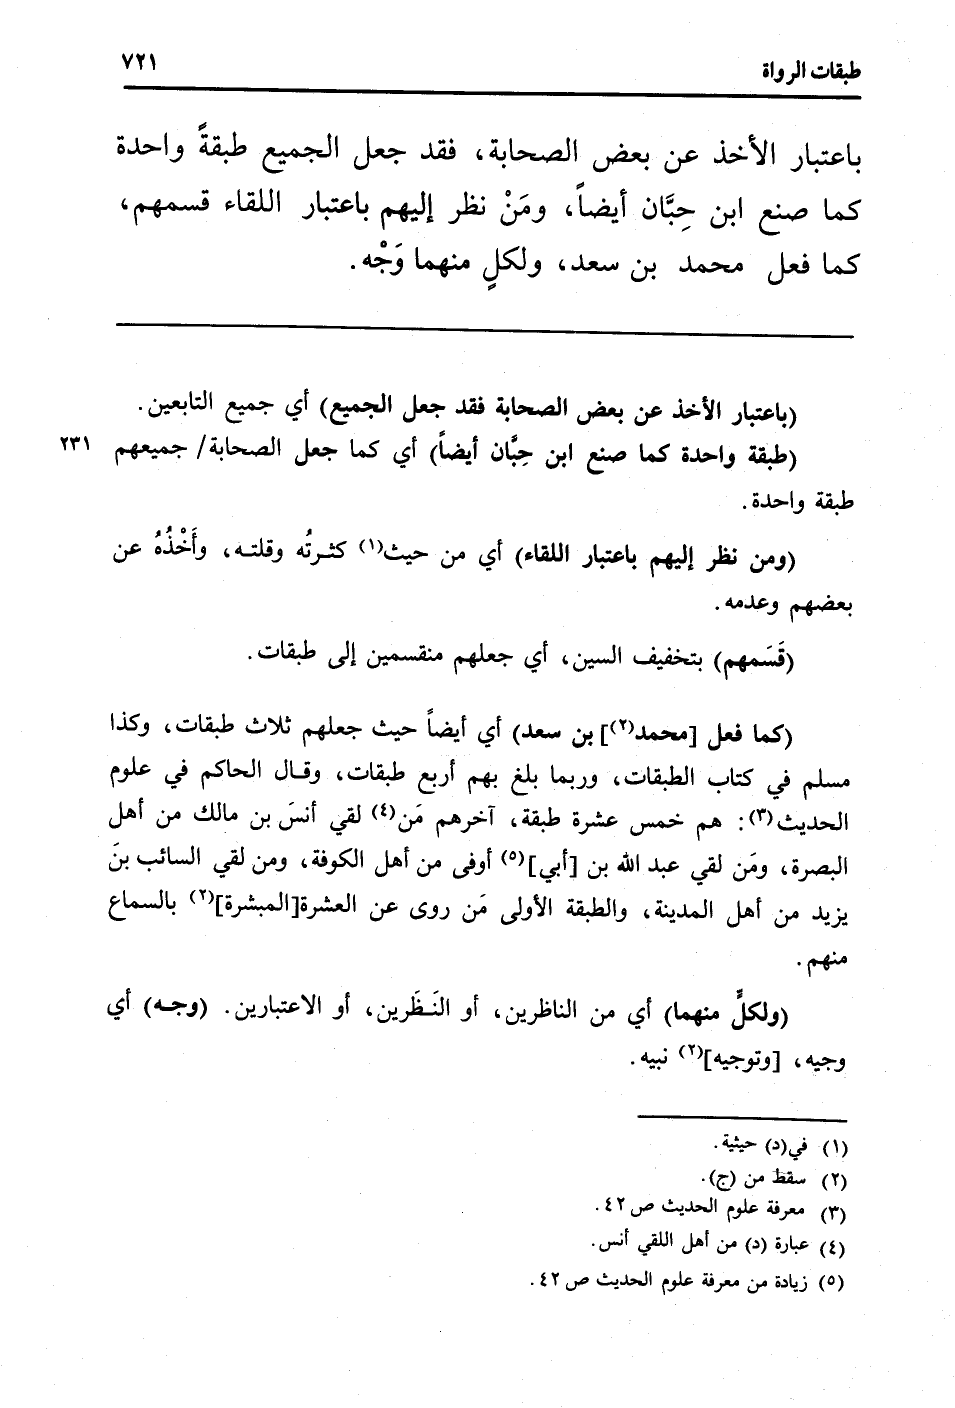 طبقات الرواة ٧٢١
باعتبار الأخذ عن بعض الصحابة، فقد جعل الجميع طبقةً واحدة
كما صنع ابن حِبَّان أيضاً، ومَنْ نظر إليهم باعتبار اللقاء قسمهم،
كما فعل محمد بن سعد، ولكلٍ منهما وَجْه.
(باعتبار الأخذ عن بعض الصحابة فقد جعل الجميع) أي جميع التابعين.
(طبقة واحدة كما صنع ابن حِبَّان أيضاً) أي كما جعل الصحابة/ جميعهم ٢٣١
طبقة واحدة.
(ومن نظر إليهم باعتبار اللقاء) أي من حيث(١) كثرتُه وقلتـه، وأَخْذُهُ عن
بعضهم وعدمه.
(قَسَمهم) بتخفيف السين، أي جعلهم منقسمين إلى طبقات.
(كما فعل [محمد(٢)] بن سعد) أي أيضاً حيث جعلهم ثلاث طبقات، وكذا
مسلم في كتاب الطبقات، وربما بلغ بهم أربع طبقات، وقـال الحاكم في علوم
الحديث(٣): هم خمس عشرة طبقة، آخرهم مَن(٤) لقي أنسَ بن مالك من أهل
البصرة، ومَن لقي عبد الله بن [أبي](٥) أوفى من أهل الكوفة، ومن لقي السائب بنَ
يزيد من أهل المدينة، والطبقة الأولى مَن روى عن العشرة[المبشرة](٢) بالسماع
منهم.
(ولكلٍّ منهما) أي من الناظرين، أو النَـظَرين، أو الاعتبارين. (وجـه) أي
وجيه، [وتوجيه](٢) نبيه.
(١) في(د) حيثية.
(٢) سقط من (ج).
(٣) معرفة علوم الحديث ص٤٢.
(٤) عبارة (د) من أهل اللقي أنس.
(٥) زيادة من معرفة علوم الحديث ص٤٢.